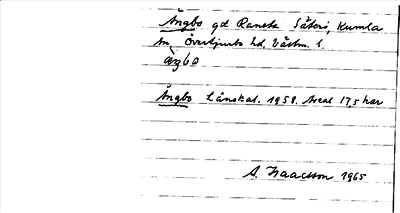 Ängbo gd Ransta Säteri, Kumla
sn, Övertjurbo hd, Västm. l.
àŋbo
Ängbo Länskal. 1958. Areal 175 har
A. Isaacsson 1965